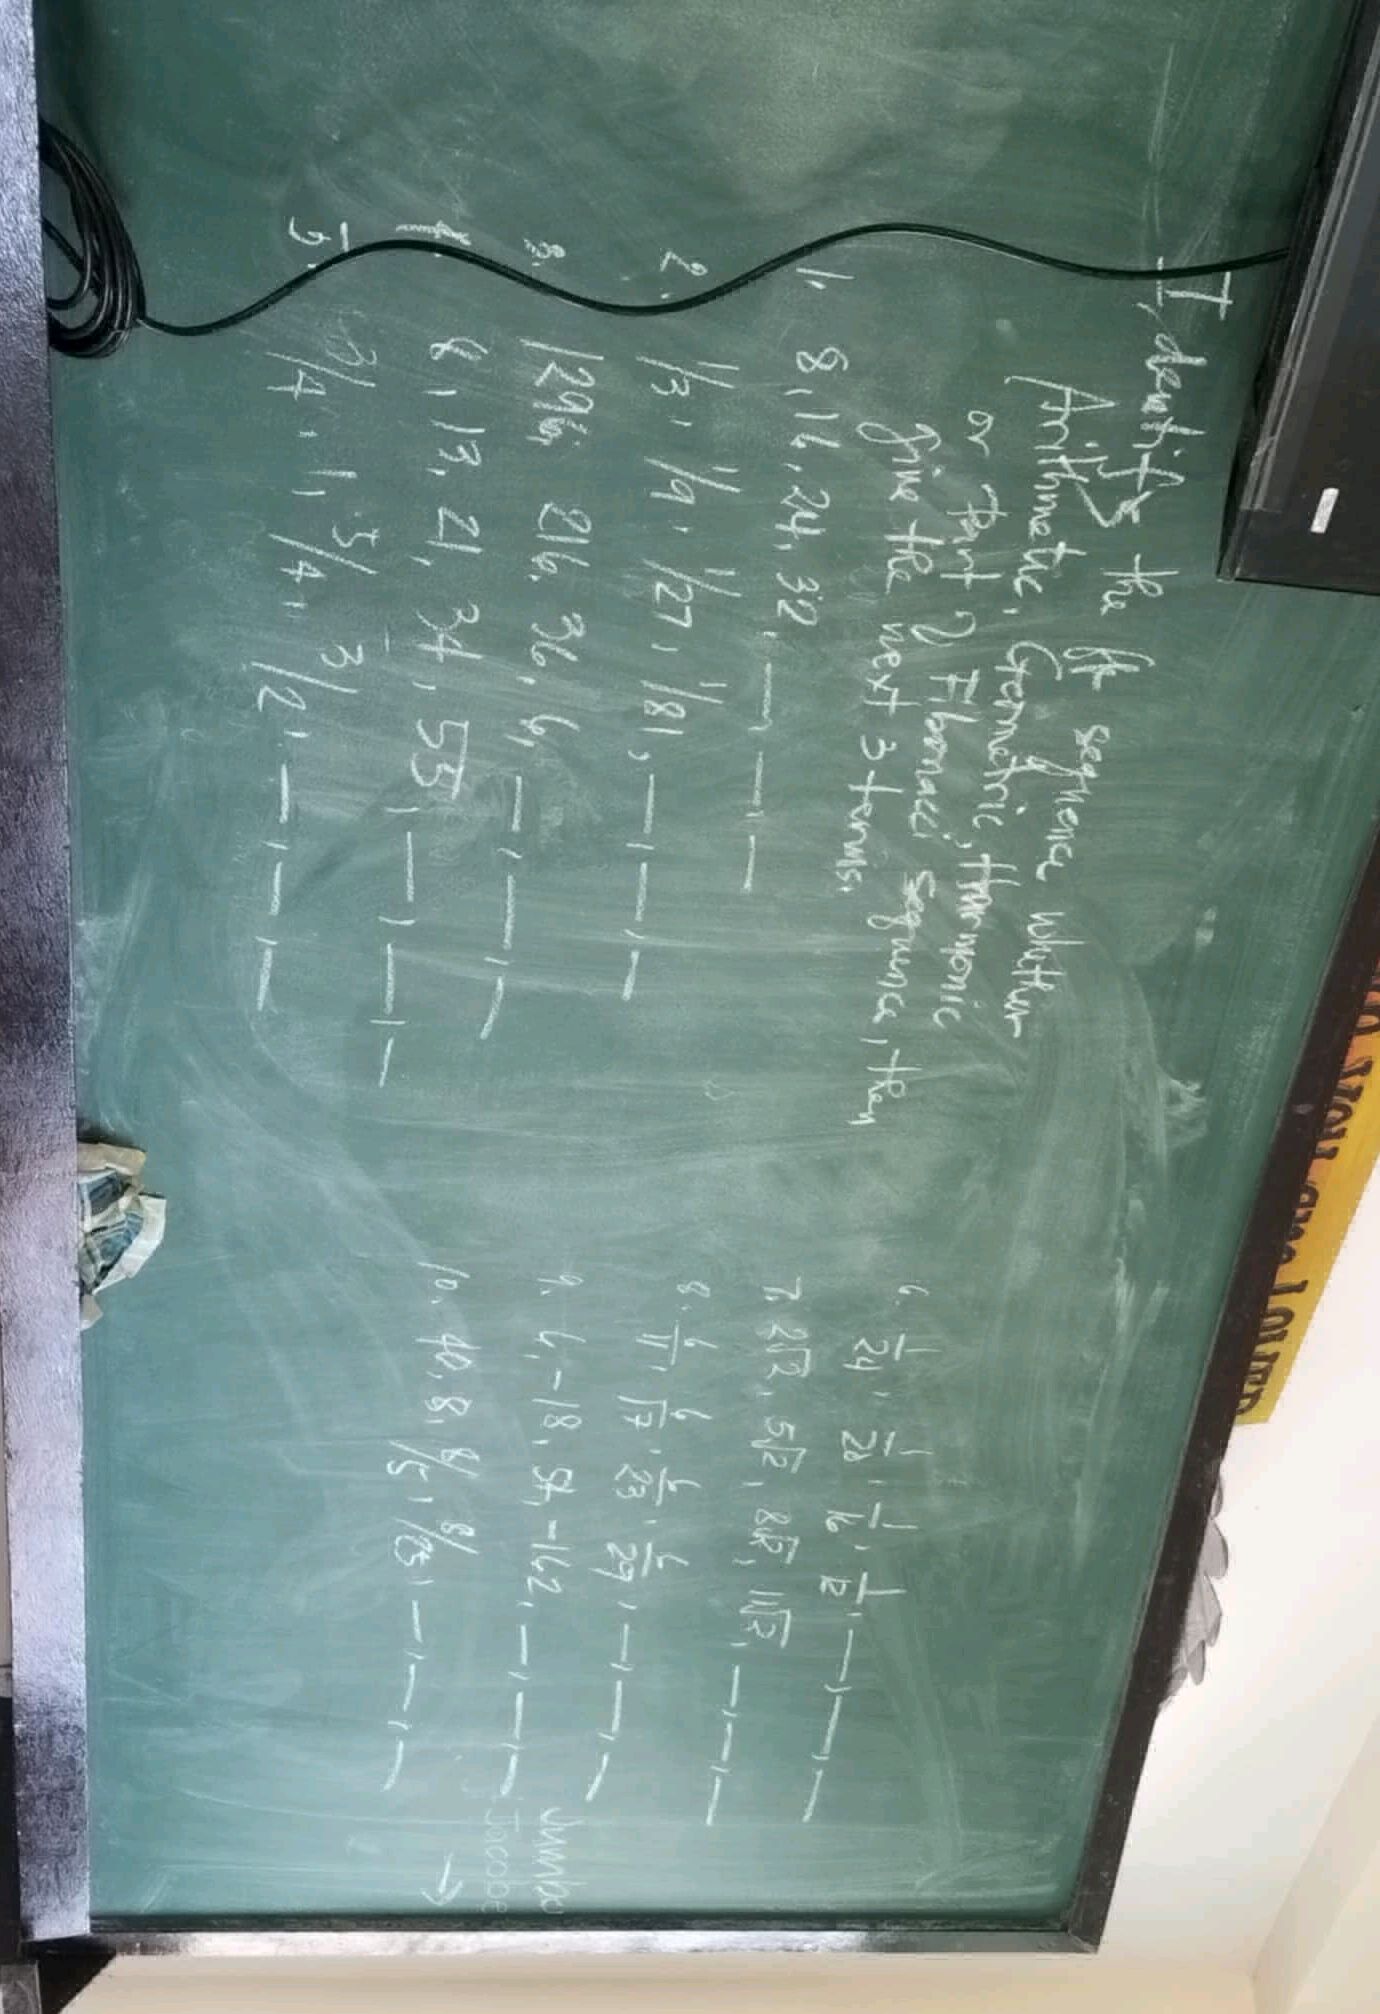 I. Identify the sequence whether
Arithmetic, Geometric, Harmonic
or Fibonacci sequence, then
give the next 3 terms.
1. 8, 16, 24, 32, __, __, __
2. 1/3, 1/9, 1/27, 1/81, __, __, __
3. 1296, 216, 36, 6, __, __, __
4. 8, 13, 21, 34, 55, __, __, __
5. 3/4, 1, 5/4, 3/2, __, __, __
6. 1/24, 1/20, 1/16, 1/12, __, __, __
7. 2√2, 5√2, 8√2, 11√2, __, __, __
8. 6/11, 6/17, 6/23, 6/29, __, __, __
9. 6, -18, 54, -162, __, __, __
10. 40, 8, 8/5, 8/25, __, __, __
Jacobe
→
YOU are LOVED